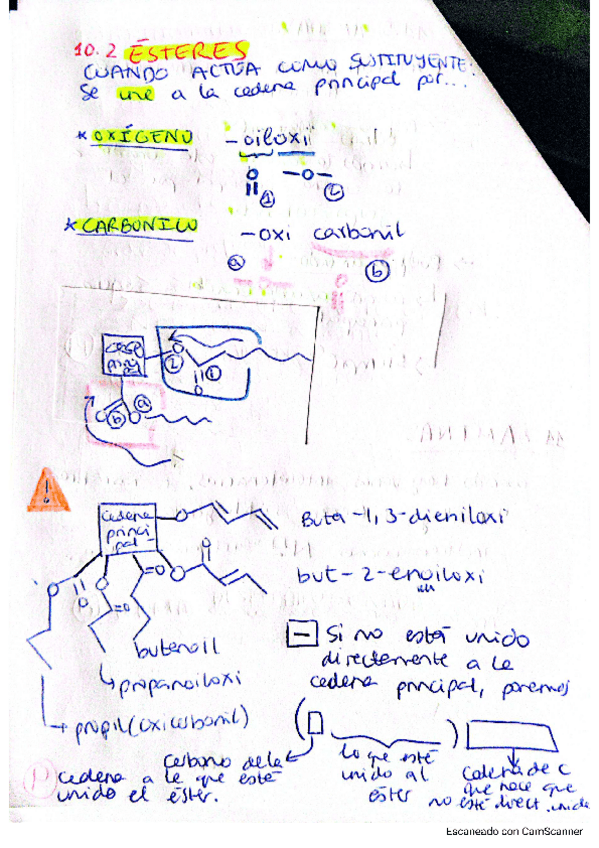 10.2 ÉSTERES
CUANDO ACTÚA COMO SUSTITUYENTE.
Se une a la cadena principal por...
* OXÍGENO -oiloxi
O -O-
① ②
* CARBONILO -oxi carbonil
ⓐ ⓑ
O
② ①
O
ⓐ
O ⓑ O
!
cadena
princi
pal
O
Buta-1,3-dieniloxi
O
=O O
but-2-enoiloxi
O O O
=O
butenoil
propanoiloxi
propil(oxicarbonil)
Si no está unido
directamente a la
cadena principal, ponemos
( )
Carbono de la
cadena a la que está
unido el éster.
lo que esté
unido al
éster
Cadena de C
que hace que
no esté direct. unida
Escaneado con CamScanner